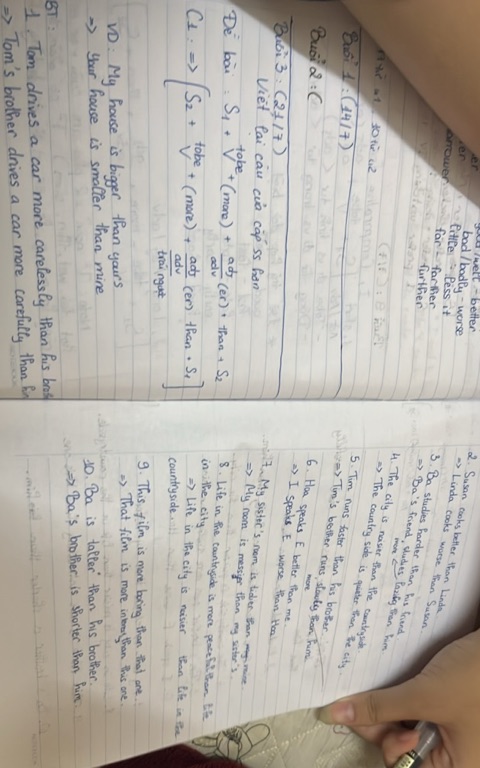 good/well - better
bad/badly - worse
little - less
far - farther
further
Buổi 1 : (14/7)
Buổi 2 : (
Buổi 3 : (21/7)
Viết lại câu của cấp so hơn
Đề bài : S1 + tobe/V + (more) + adj/adv (er) + than + S2
C1 : => [S2 + tobe/V + (more) + adj/adv (er) than + S1]
trái nghĩa
VD: My house is bigger than yours
=> Your house is smaller than mine
BT:
1. Tom drives a car more carelessly than his
=> Tom's brother drives a car more carefully than
2 Susan cooks better than Linda
=> Linda cooks worse than Susan
3 Ba studies harder than his friend
=> Ba's friend studies more than him
4. The city is noisier than the countryside
=> The country side is quieter than the city.
5. Tim runs faster than his brother
=> Tim's brother runs more slowly than him
6. Hoa speaks E better than me
=> I speaks E worse than Hoa
7. My sister's room is than mine
=> My room is messier than my sister's
8. Life in the countryside is more peaceful than life
in the city
=> Life in the city is nosier than life in the
countryside
9 This film is more boring than that one.
=> That film is more than this one
10. Ba is taller than his brother.
=> Ba's brother is shorter than him.